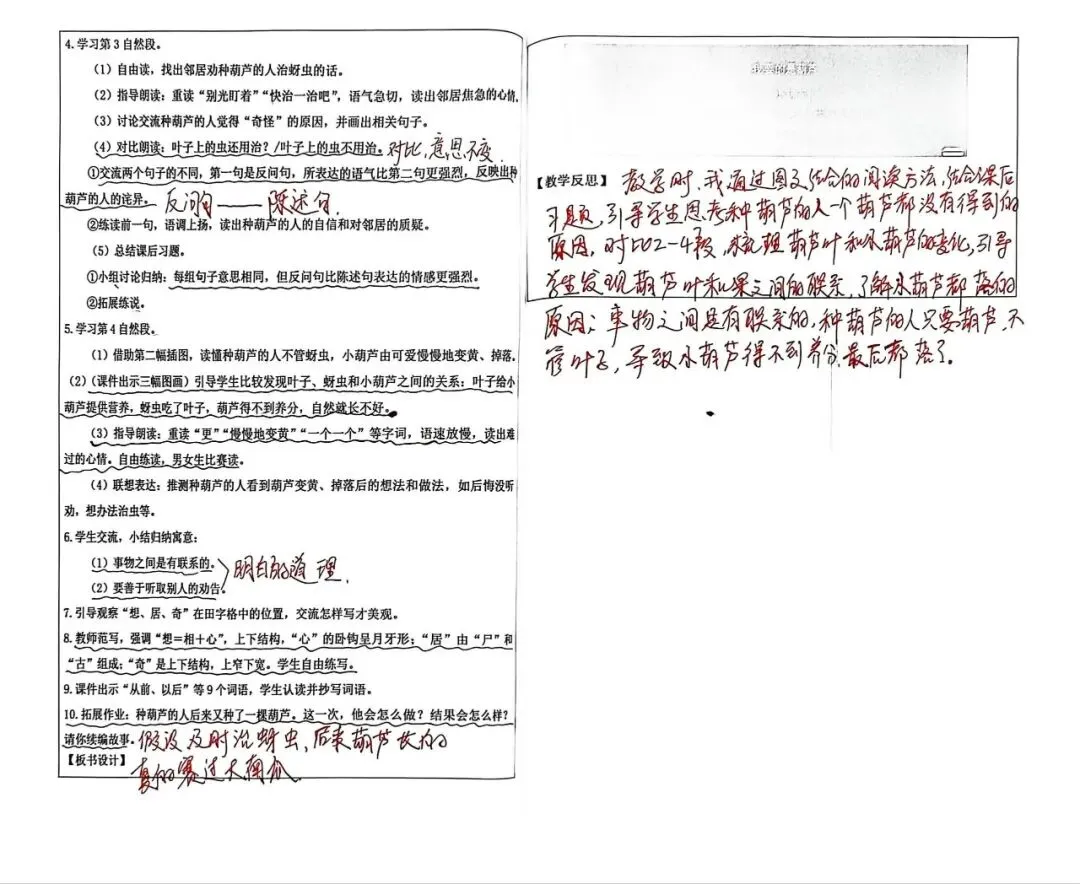 4. 学习第3自然段。
（1）自由读，找出邻居劝种葫芦的人治蚜虫的话。
（2）指导朗读：重读“别光盯着”“快治一治吧”，语气急切，读出邻居焦急的心情。
（3）讨论交流种葫芦的人觉得“奇怪”的原因，并画出相关句子。
（4）对比朗读：叶子上的虫还用治？/叶子上的虫不用治。对比，意思不变
①交流两个句子的不同，第一句是反问句，所表达的语气比第二句更强烈，反映出种
葫芦的人的诧异。反问句——陈述句.
②练读前一句，语调上扬，读出种葫芦的人的自信和对邻居的质疑。
（5）总结课后习题。
①小组讨论归纳：每组句子意思相同，但反问句比陈述句表达的情感更强烈。
②拓展练说。
5. 学习第4自然段。
（1）借助第二幅插图，读懂种葫芦的人不管蚜虫，小葫芦由可爱慢慢地变黄、掉落。
（2）（课件出示三幅图画）引导学生比较发现叶子、蚜虫和小葫芦之间的关系：叶子给小
葫芦提供营养，蚜虫吃了叶子，葫芦得不到养分，自然就长不好。
（3）指导朗读：重读“更”“慢慢地变黄”“一个一个”等字词，语速放慢，读出难
过的心情。自由练读，男女生比赛读。
（4）联想表达：推测种葫芦的人看到葫芦变黄、掉落后的想法和做法，如后悔没听
劝，想办法治虫等。
6. 学生交流，小结归纳寓意：
（1）事物之间是有联系的。
（2）要善于听取别人的劝告。
明白的道理.
7. 引导观察“想、居、奇”在田字格中的位置，交流怎样写才美观。
8. 教师范写，强调“想＝相＋心”，上下结构，“心”的卧钩呈月牙形；“居”由“尸”和
“古”组成；“奇”是上下结构，上窄下宽。学生自由练写。
9. 课件出示“从前、以后”等9个词语，学生认读并抄写词语。
10. 拓展作业：种葫芦的人后来又种了一棵葫芦。这一次，他会怎么做？结果会怎么样？
请你续编故事。假设及时治蚜虫，后来葫芦长的
【板书设计】真的赛过大南瓜.
我要的是葫芦
【教学反思】教学时，我通过图文结合的阅读方法，结合课后
习题，引导学生思考种葫芦的人一个葫芦都没有得到的
原因，对比2-4段，梳理葫芦叶和小葫芦的变化，引导
学生发现葫芦叶和果之间的联系，了解小葫芦都落的
原因：事物之间是有联系的，种葫芦的人只要葫芦，不
管叶子，导致小葫芦得不到养分，最后都落了。